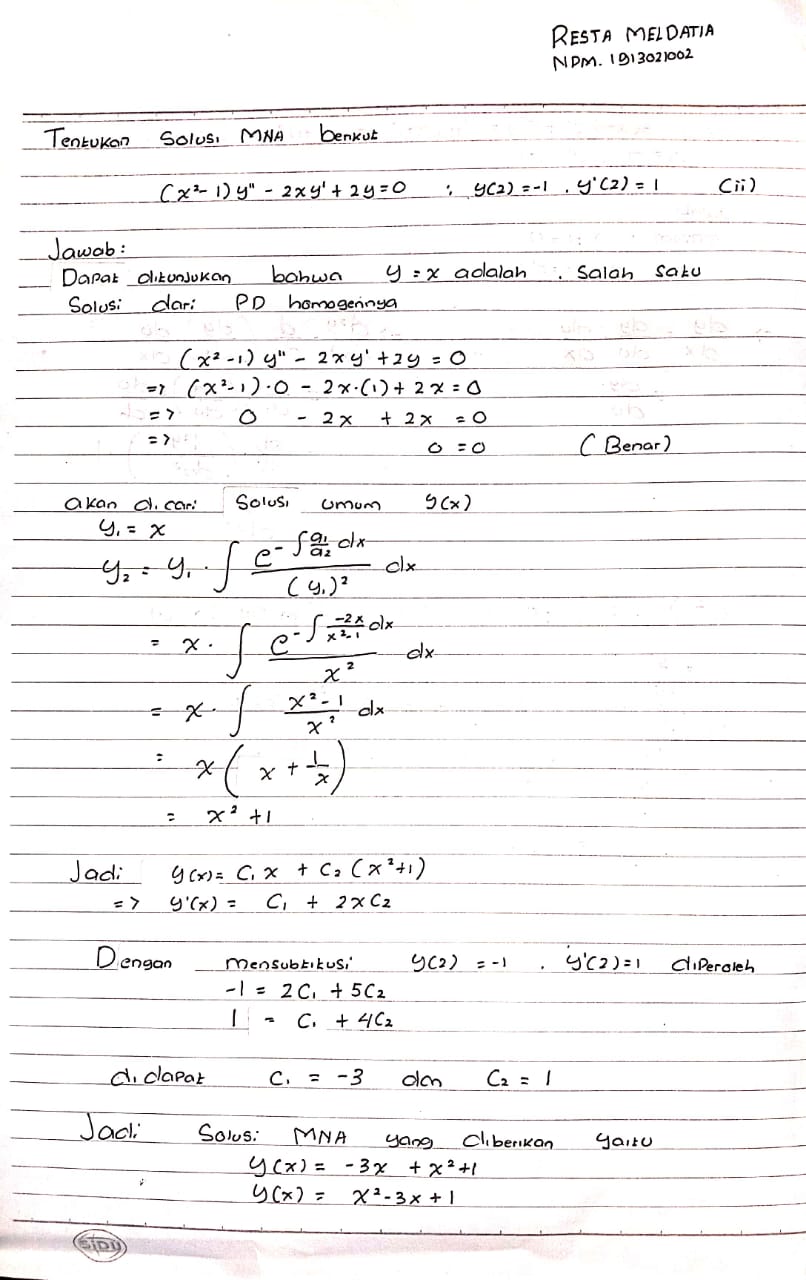 RESTA MELDATIA
NPM. 1913021002
Tentukan Solusi MNA berikut
(x²-1) y" - 2xy' + 2y=0 ; y(2) =-1 , y'(2) = 1 (ii)
Jawab :
Dapat ditunjukan bahwa y = x adalah . Salah satu
Solusi dari PD homogennya
(x²-1) y" - 2xy' + 2y = 0
=> (x²-1)·0 - 2x·(1) + 2x = 0
=> 0 - 2x + 2x = 0
=> 0 = 0 (Benar)
akan di cari Solusi umum y(x)
y₁ = x
y₂ = y₁ · ∫ e^(-∫ a₁/a₂ dx) / (y₁)² dx
= x · ∫ e^(-∫ -2x/(x²-1) dx) / x² dx
= x · ∫ (x²-1)/x² dx
= x ( x + 1/x )
= x² + 1
Jadi y(x) = C₁ x + C₂ (x²+1)
=> y'(x) = C₁ + 2xC₂
Dengan mensubtikusi y(2) = -1 , y'(2)=1 diperoleh
-1 = 2C₁ + 5C₂
1 = C₁ + 4C₂
didapat C₁ = -3 dan C₂ = 1
Jadi Solusi MNA yang diberikan yaitu
y(x) = -3x + x²+1
y(x) = x²-3x+1
SIDU